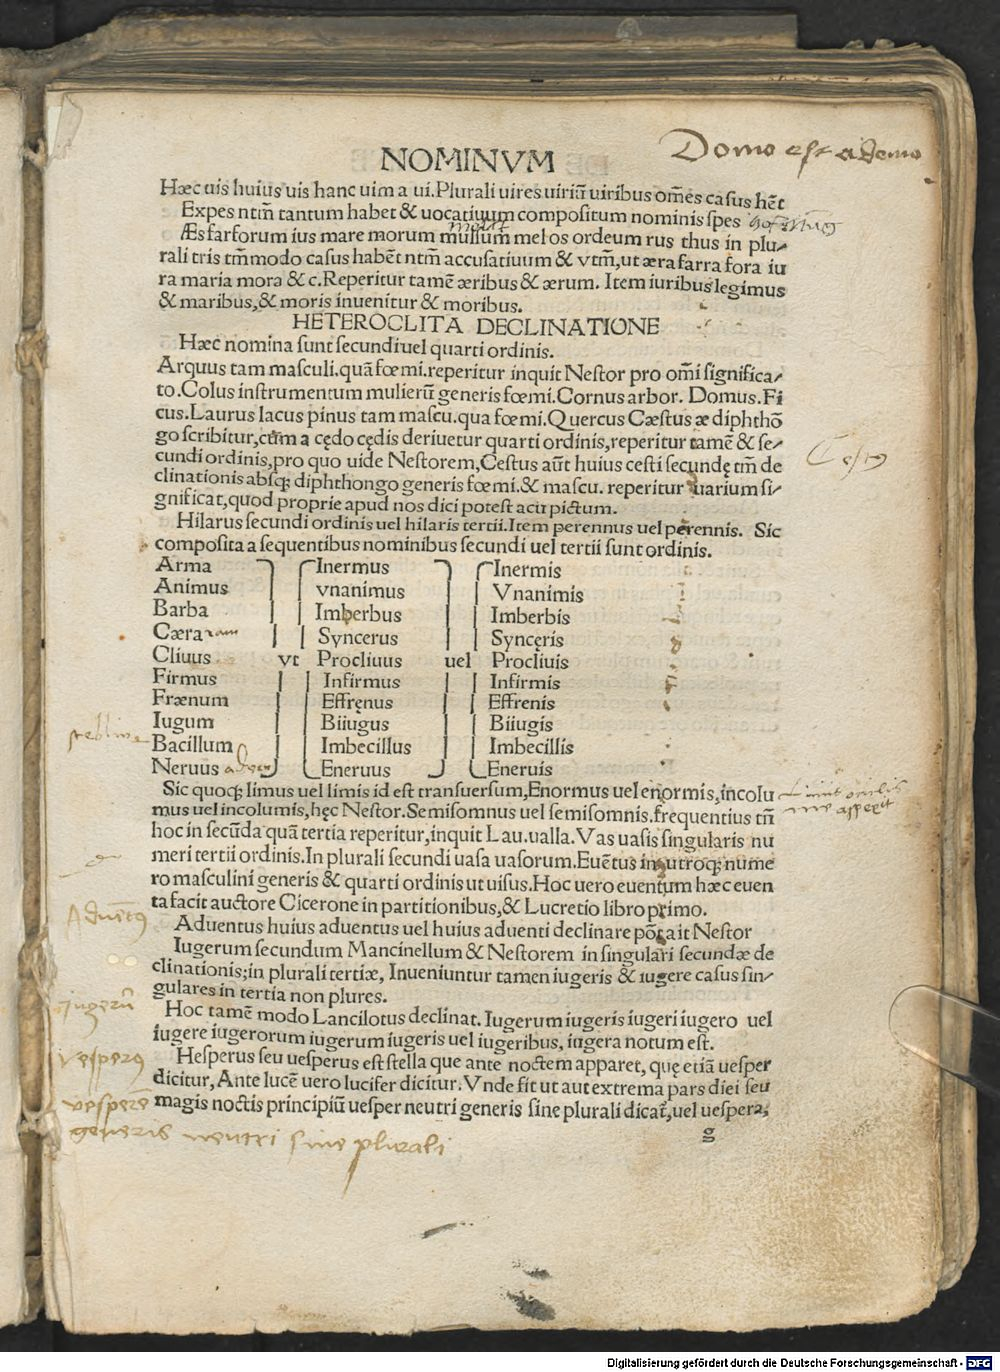 NOMINVM
Domo est a domo
Hæc uis huius uis hanc uim a ui.Plurali uires uiriū uiribus oēs casus hēt
Expes ntm̄ tantum habet & uocatiuum compositum nominis spes
Æs far forum ius mare morum mulsum mel os ordeum rus thus in plu-
rali tris tm̄modo casus habēt ntm̄ accusatiuum & vtm̄,ut æra farra fora iu
ra maria mora & c.Reperitur tamē æribus & ærum. Item iuribus legimus
& maribus,& moris inuenitur & moribus.
HETEROCLITA DECLINATIONE
Hæc nomina sunt secundi uel quarti ordinis.
Arquus tam masculi.quā fœmi.reperitur inquit Nestor pro om̄i significa-
to.Colus instrumentum mulierū generis fœmi.Cornus arbor. Domus.Fi
cus.Laurus lacus pinus tam mascu.qua fœmi.Quercus Cæstus æ diphthō
go scribitur,cum a cędo cędis deriuetur quarti ordinis,reperitur tamē & se-
cundi ordinis,pro quo uide Nestorem,Cestus aūt huius cesti secundę tm̄ de
clinationis absq; diphthongo generis fœmi.& mascu. reperitur uarium si-
gnificat,quod proprie apud nos dici potest acu pictum.
Hilarus secundi ordinis uel hilaris tertii.Item perennus uel perennis. Sic
composita a sequentibus nominibus secundi uel tertii sunt ordinis.
Arma Inermus Inermis
Animus vnanimus Vnanimis
Barba Imberbus Imberbis
Cæra Syncerus Syncęris
Cliuus vt Procliuus uel Procliuis
Firmus Infirmus Infirmis
Frænum Effręnus Effrenis
Iugum Biiugus Biiugis
Bacillum Imbecillus Imbecillis
Neruus Eneruus Eneruis
Sic quoq; limus uel limis id est transuersum,Enormus uel enormis,incolu
mus uel incolumis,hęc Nestor.Semisomnus uel semisomnis.frequentius tn̄
hoc in secūda quā tertia reperitur,inquit Lau.ualla.Vas uasis singularis nu
meri tertii ordinis.In plurali secundi uasa uasorum.Euētus in utroq; nume
ro masculini generis & quarti ordinis ut uisus.Hoc uero euentum hæc euen
ta facit auctore Cicerone in partitionibus,& Lucretio libro primo.
Aduentus huius aduentus uel huius aduenti declinare pōt ait Nestor
Iugerum secundum Mancinellum & Nestorem in singulari secundæ de
clinationis;in plurali tertiæ, Inueniuntur tamen iugeris & iugere casus sin-
gulares in tertia non plures.
Hoc tamē modo Lancilotus declinat. Iugerum iugeris iugeri iugero uel
iugere iugerorum iugerum iugeris uel iugeribus, iugera notum est.
Hesperus seu uesperus est stella que ante noctem apparet, quę etiā uesper
dicitur, Ante lucē uero lucifer dicitur. Vnde fit ut aut extrema pars diei seu
magis noctis principiū uesper neutri generis sine plurali dicat̄,uel uespera,
g
iugerū
generis neutri sine plurali
Digitalisierung gefördert durch die Deutsche Forschungsgemeinschaft - DFG